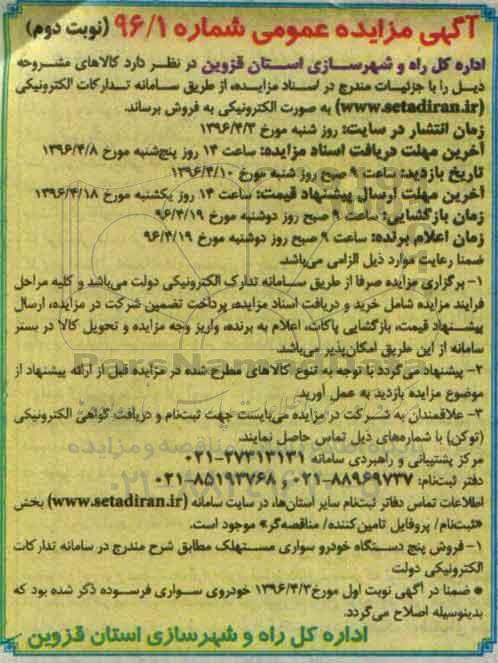 آگهی مزایده عمومی شماره ۹۶/۱ (نوبت دوم)
اداره کل راه و شهرسازی استان قزوین در نظر دارد کالاهای مشروحه
ذیل را با جزئیات مندرج در اسناد مزایده، از طریق سامانه تدارکات الکترونیکی
(www.setadiran.ir) به صورت الکترونیکی به فروش برساند.
زمان انتشار در سایت: روز شنبه مورخ ۱۳۹۶/۴/۳
آخرین مهلت دریافت اسناد مزایده: ساعت ۱۴ روز پنج‌شنبه مورخ ۱۳۹۶/۴/۸
تاریخ بازدید: ساعت ۹ صبح روز شنبه مورخ ۱۳۹۶/۴/۱۰
آخرین مهلت ارسال پیشنهاد قیمت: ساعت ۱۴ روز یکشنبه مورخ ۱۳۹۶/۴/۱۸
زمان بازگشایی: ساعت ۹ صبح روز دوشنبه مورخ ۹۶/۴/۱۹
زمان اعلام برنده: ساعت ۹ صبح روز دوشنبه مورخ ۹۶/۴/۱۹
ضمنا رعایت موارد ذیل الزامی می‌باشد.
۱- برگزاری مزایده صرفا از طریق سامانه تدارک الکترونیکی دولت می‌باشد و کلیه مراحل
فرایند مزایده شامل خرید و دریافت اسناد مزایده، پرداخت تضمین شرکت در مزایده، ارسال
پیشنهاد قیمت، بازگشایی پاکات، اعلام به برنده، واریز وجه مزایده و تحویل کالا در بستر
سامانه از این طریق امکان‌پذیر می‌باشد.
۲- پیشنهاد می‌گردد با توجه به تنوع کالاهای مطرح شده در مزایده قبل از ارائه پیشنهاد از
موضوع مزایده بازدید به عمل آورید.
۳- علاقمندان به شرکت در مزایده می‌بایست جهت ثبت‌نام و دریافت گواهی الکترونیکی
(توکن) با شماره‌های ذیل تماس حاصل نمایند.
مرکز پشتیبانی و راهبردی سامانه ۲۷۳۱۳۱۳۱-۰۲۱
دفتر ثبت‌نام: ۸۸۹۶۹۷۳۷-۰۲۱، ۸۵۱۹۳۷۶۸-۰۲۱
اطلاعات تماس دفاتر ثبت‌نام سایر استان‌ها، در سایت سامانه (www.setadiran.ir) بخش
«ثبت‌نام/ پروفایل تامین‌کننده/ مناقصه‌گر» موجود است.
۱- فروش پنج دستگاه خودرو سواری مستهلک مطابق شرح مندرج در سامانه تدارکات
الکترونیکی دولت
* ضمنا در آگهی نوبت اول مورخ ۱۳۹۶/۴/۳ خودروی سواری فرسوده ذکر شده بود که
بدینوسیله اصلاح می‌گردد.
اداره کل راه و شهرسازی استان قزوین